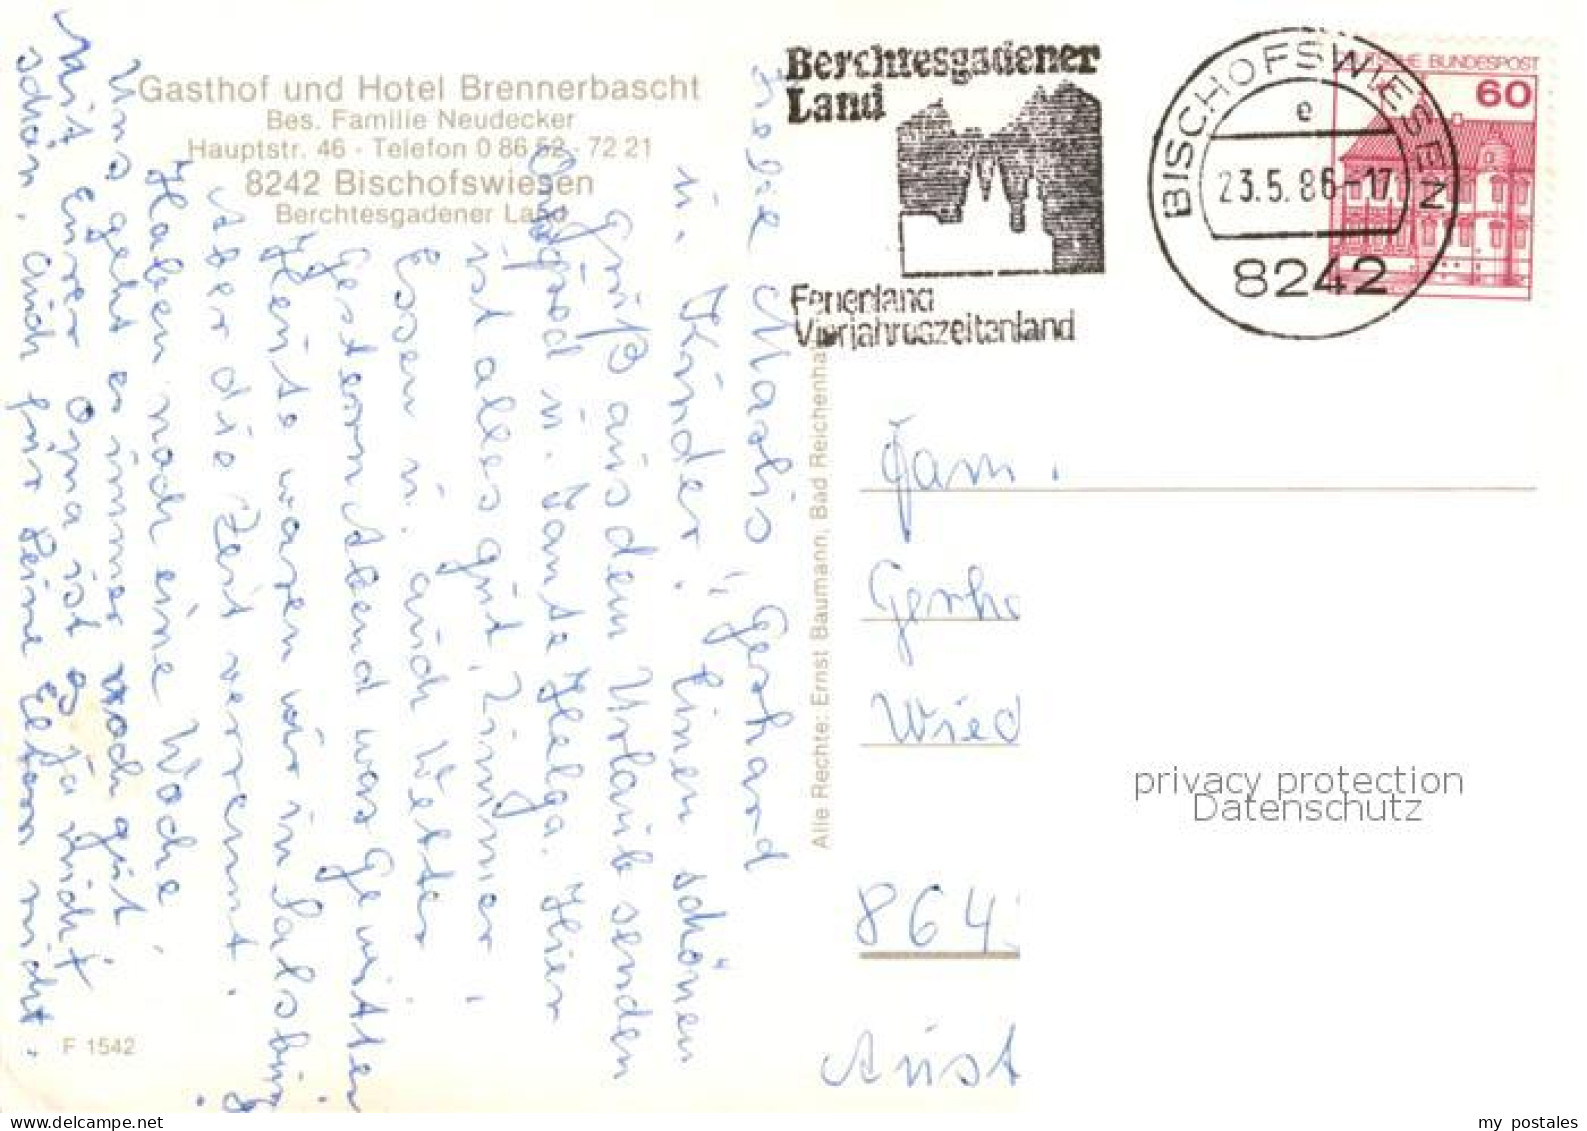 Gasthof und Hotel Brennerbascht
Bes. Familie Neudecker
Hauptstr. 46 · Telefon 0 86 52 - 72 21
8242 Bischofswiesen
Berchtesgadener Land
Liebe Marlis, Gerhard
u. Kinder! Einen schönen
Gruß aus dem Urlaub senden
u. Tante Helga. Hier
ist alles gut, Zimmer,
Essen u. auch Wetter
Gestern Abend was Gewitter
Heute waren wir in Salzburg
Aber die Zeit verrennt.
Haben noch eine Woche,
Uns geht es immer noch gut
Mit Eurer Oma ist ja nicht
schön, auch für Deine Eltern nicht.
F 1542
Alle Rechte: Ernst Baumann, Bad Reichenha
Berchtesgadener
Land
Ferienland
Vierjahreszeitenland
BISCHOFSWIESEN
e
23.5.86-17
8242
SCHE BUNDESPOST
60
Fam.
Gerha
Wied
864
Aust
privacy protection
Datenschutz
my postales